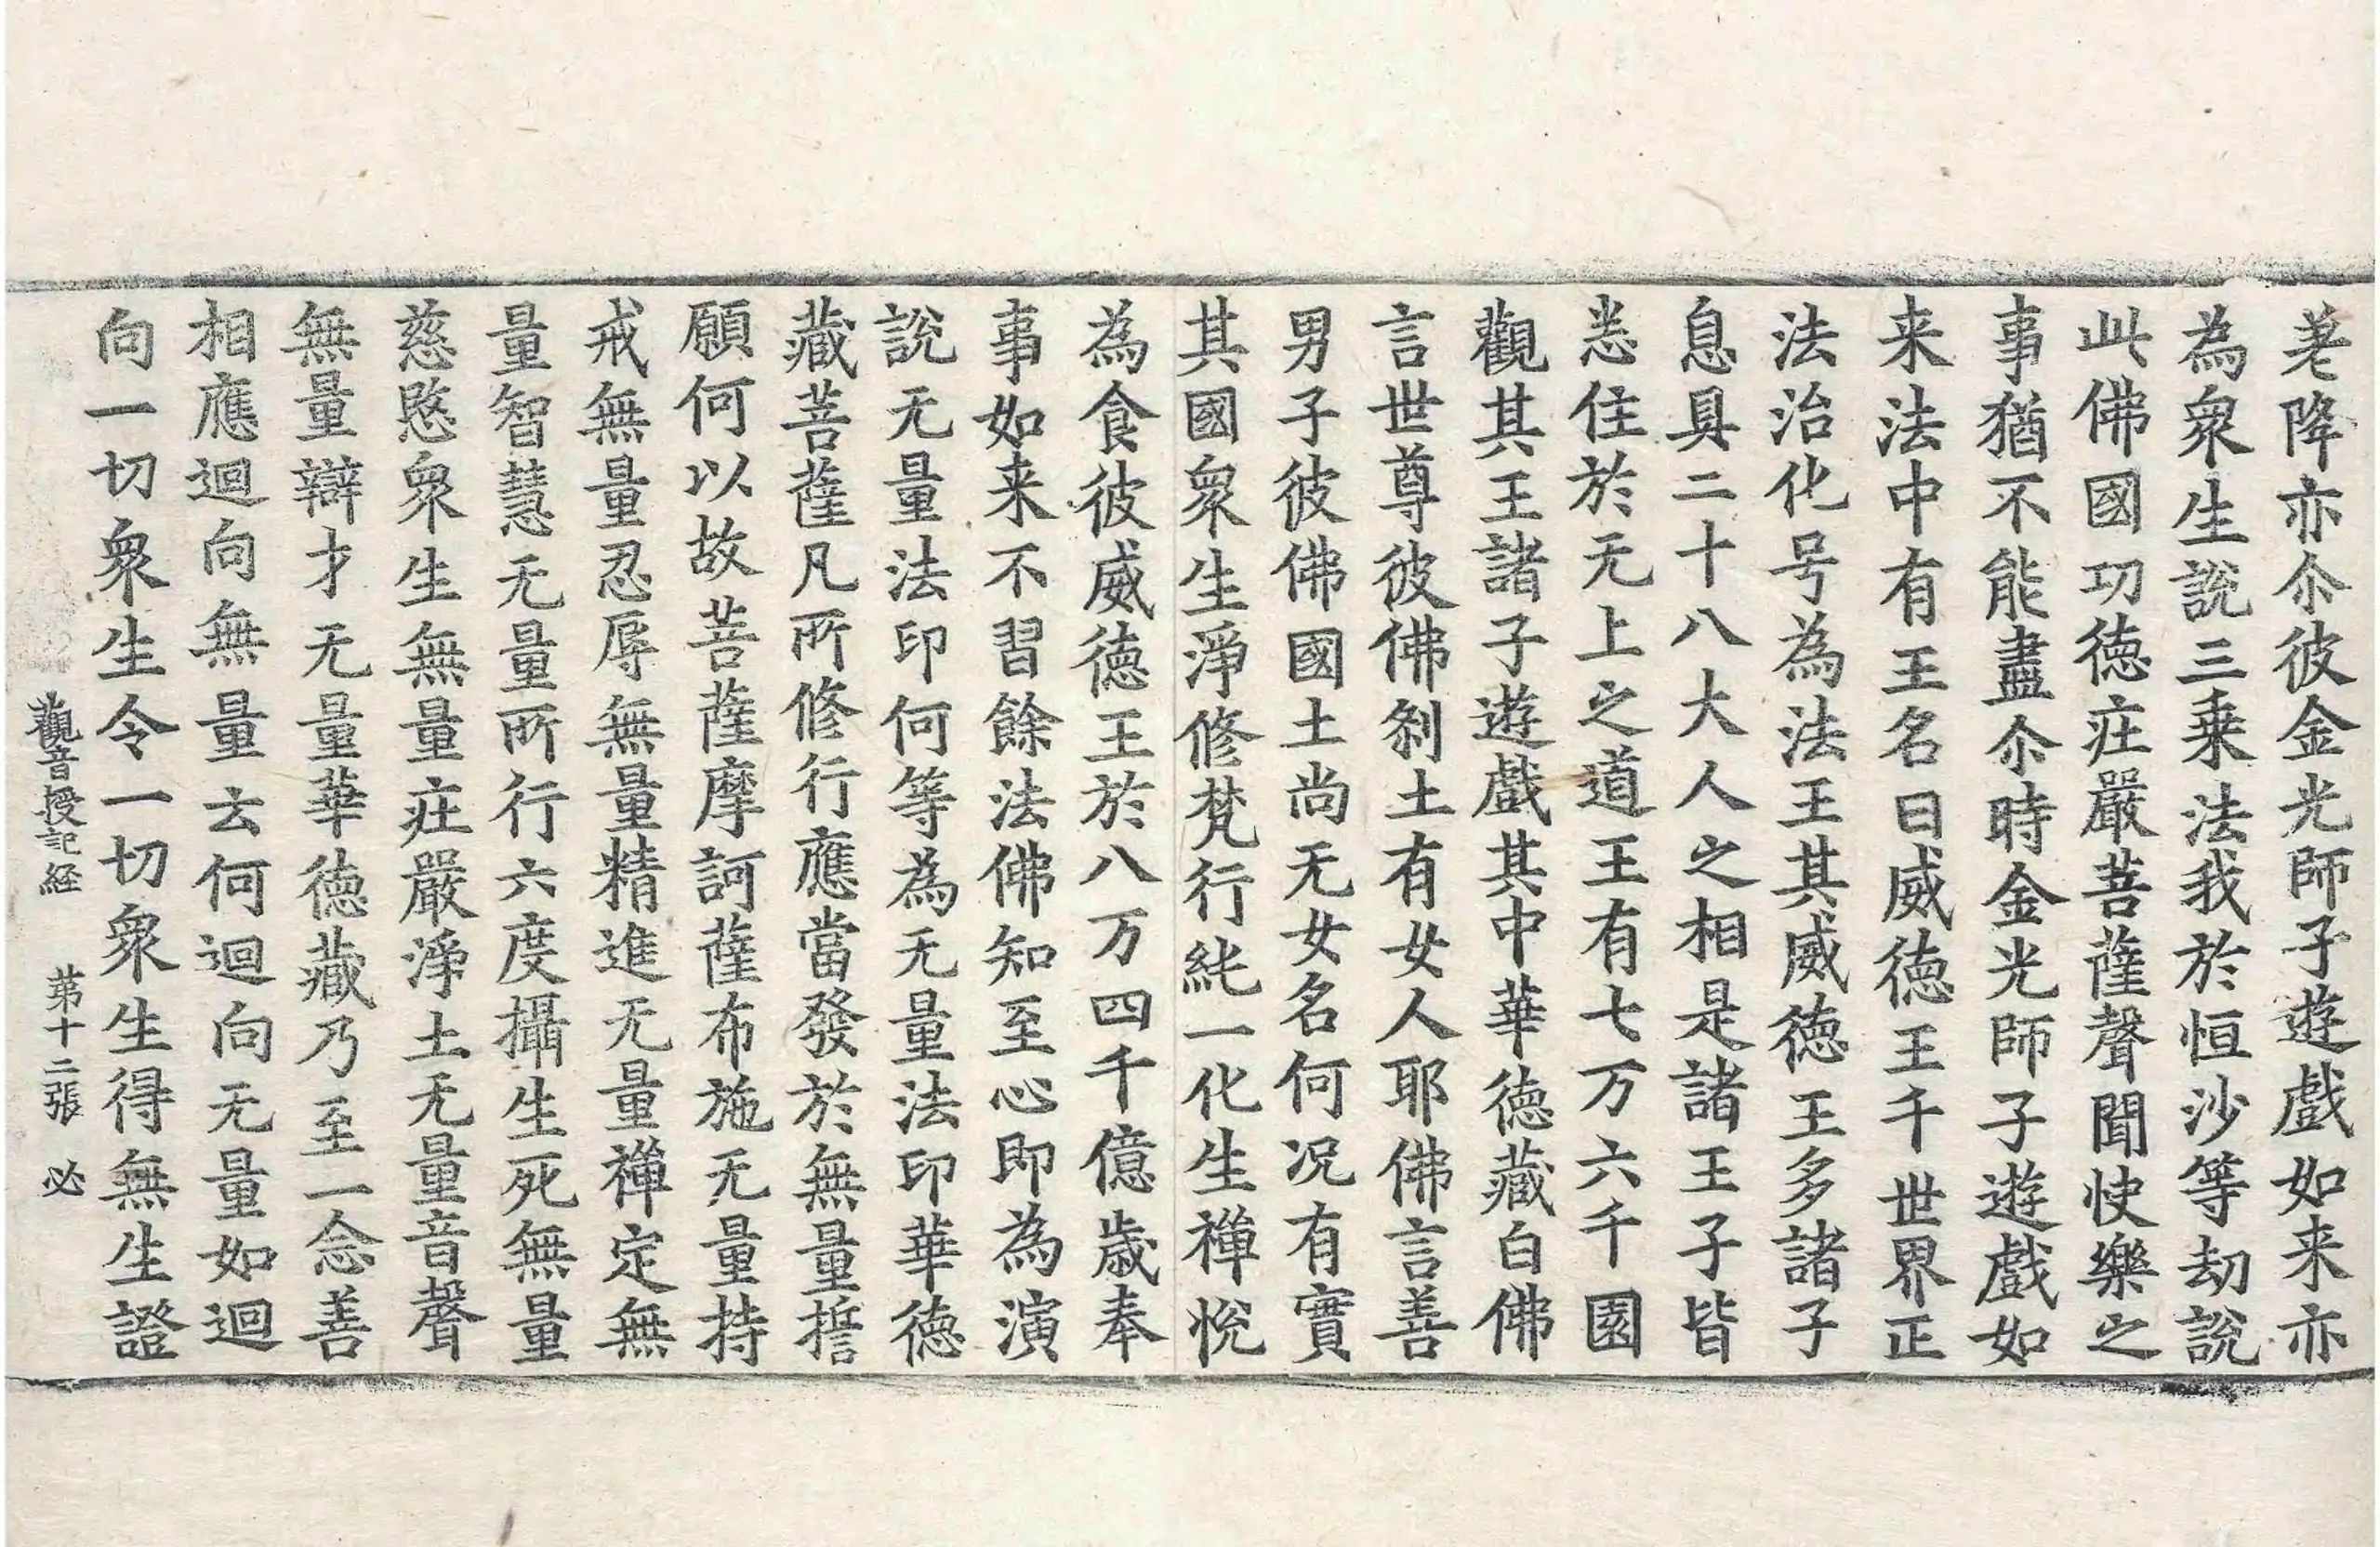 荖降亦尒彼金光師子遊戲如来亦
為衆生說三乗法我於恒沙等劫說
此佛國功徳疘嚴菩薩聲聞快樂之
事猶不能盡尒時金光師子遊戲如
来法中有王名曰威徳王千世界正
法治化号為法王其威徳王多諸子
息具二十八大人之相是諸王子皆
悉住於无上之道王有七万六千園
觀其王諸子遊戲其中華徳藏白佛
言世尊彼佛剎土有女人耶佛言善
男子彼佛國土尚无女名何况有實
其國衆生淨修梵行純一化生禪悅
為食彼威徳王於八万四千億歲奉
事如来不習餘法佛知至心即為演
說无量法印何等為无量法印華徳
藏菩薩凡所修行應當發於無量誓
願何以故菩薩摩訶薩布施无量持
戒無量忍辱無量精進无量禪定無
量智慧无量所行六度攝生死無量
慈愍衆生無量疘嚴淨土无量音聲
無量辯才无量華徳藏乃至一念善
相應迴向無量云何迴向无量如迴
向一切衆生令一切衆生得無生證
觀音授記経 苐十二張 必